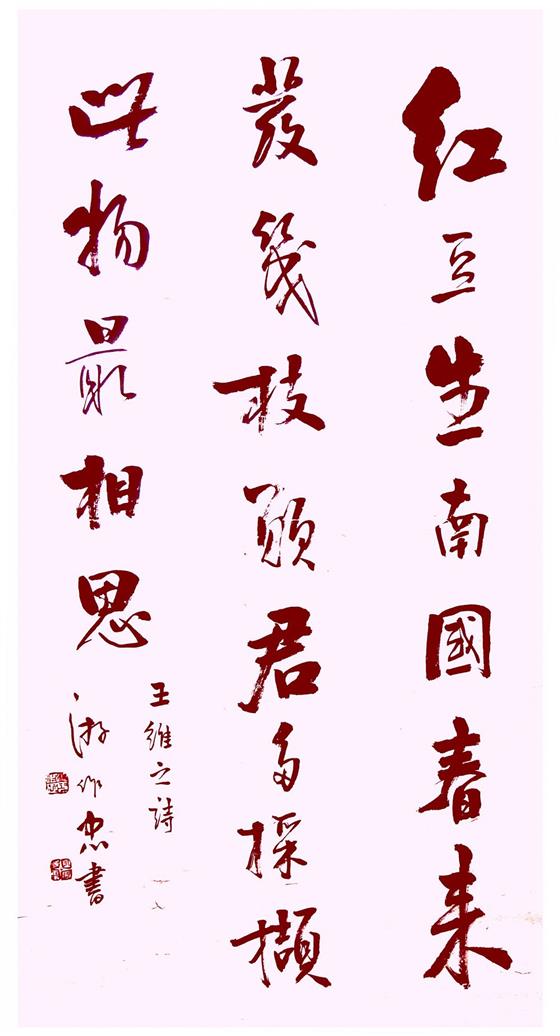 红豆生南國春来
發幾枝願君多採擷
此物最相思
王維之詩
游作忠書